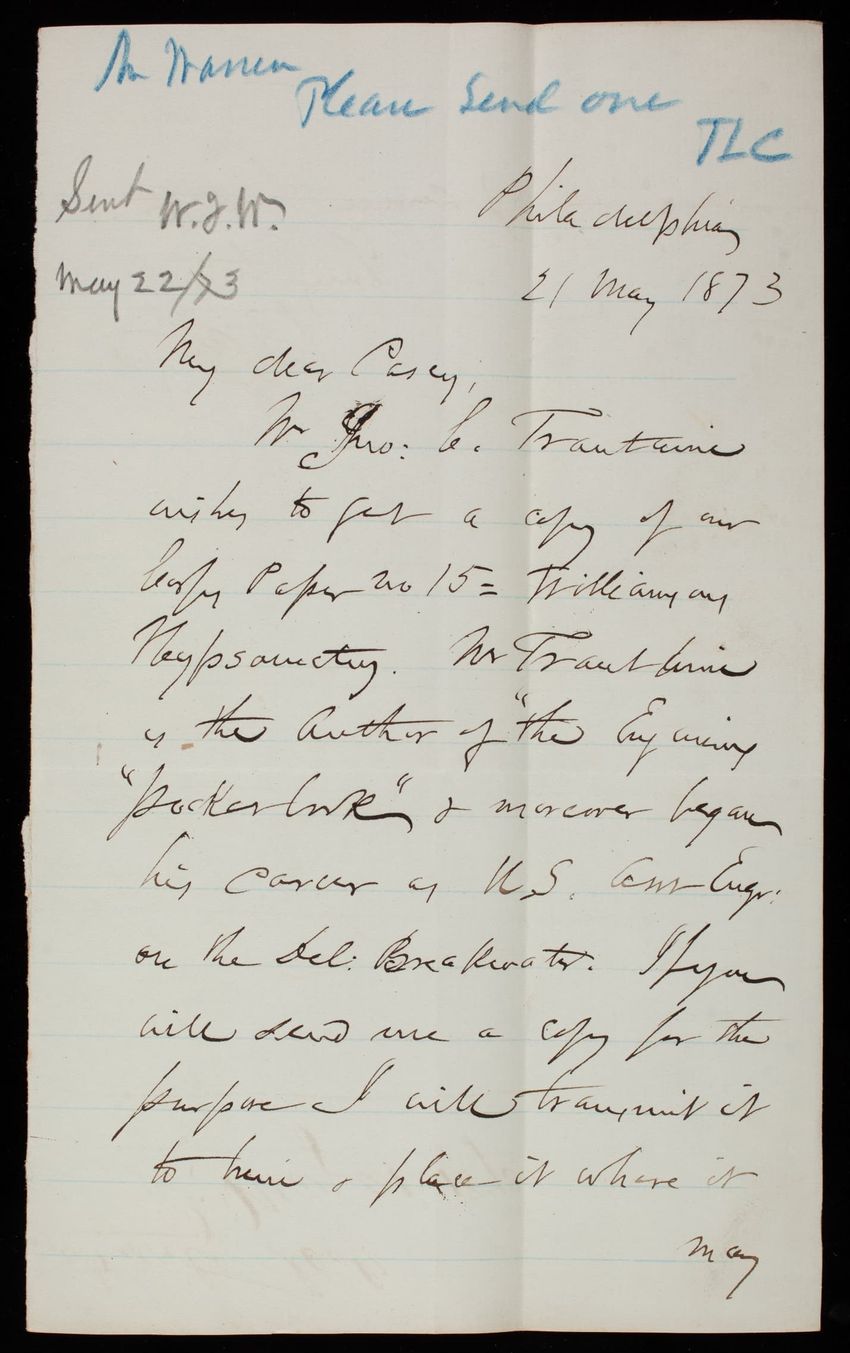 Mr Warren
Please Send one
TLC
Sent W.J.W.
May 22/73
Philadelphia
21 May 1873
My dear Casey,
Mr Jno: C. Trautwine
wishes to get a copy of our
Corps Paper no 15 = Williamson's
Hypsometry. Mr Trautwine
is the Author of "the Engineers
"pocket book" & moreover began
his career as U.S. Asst Engr:
on the Del: Breakwater. If you
will send me a copy for the
purpose I will transmit it
to him & place it where it
may